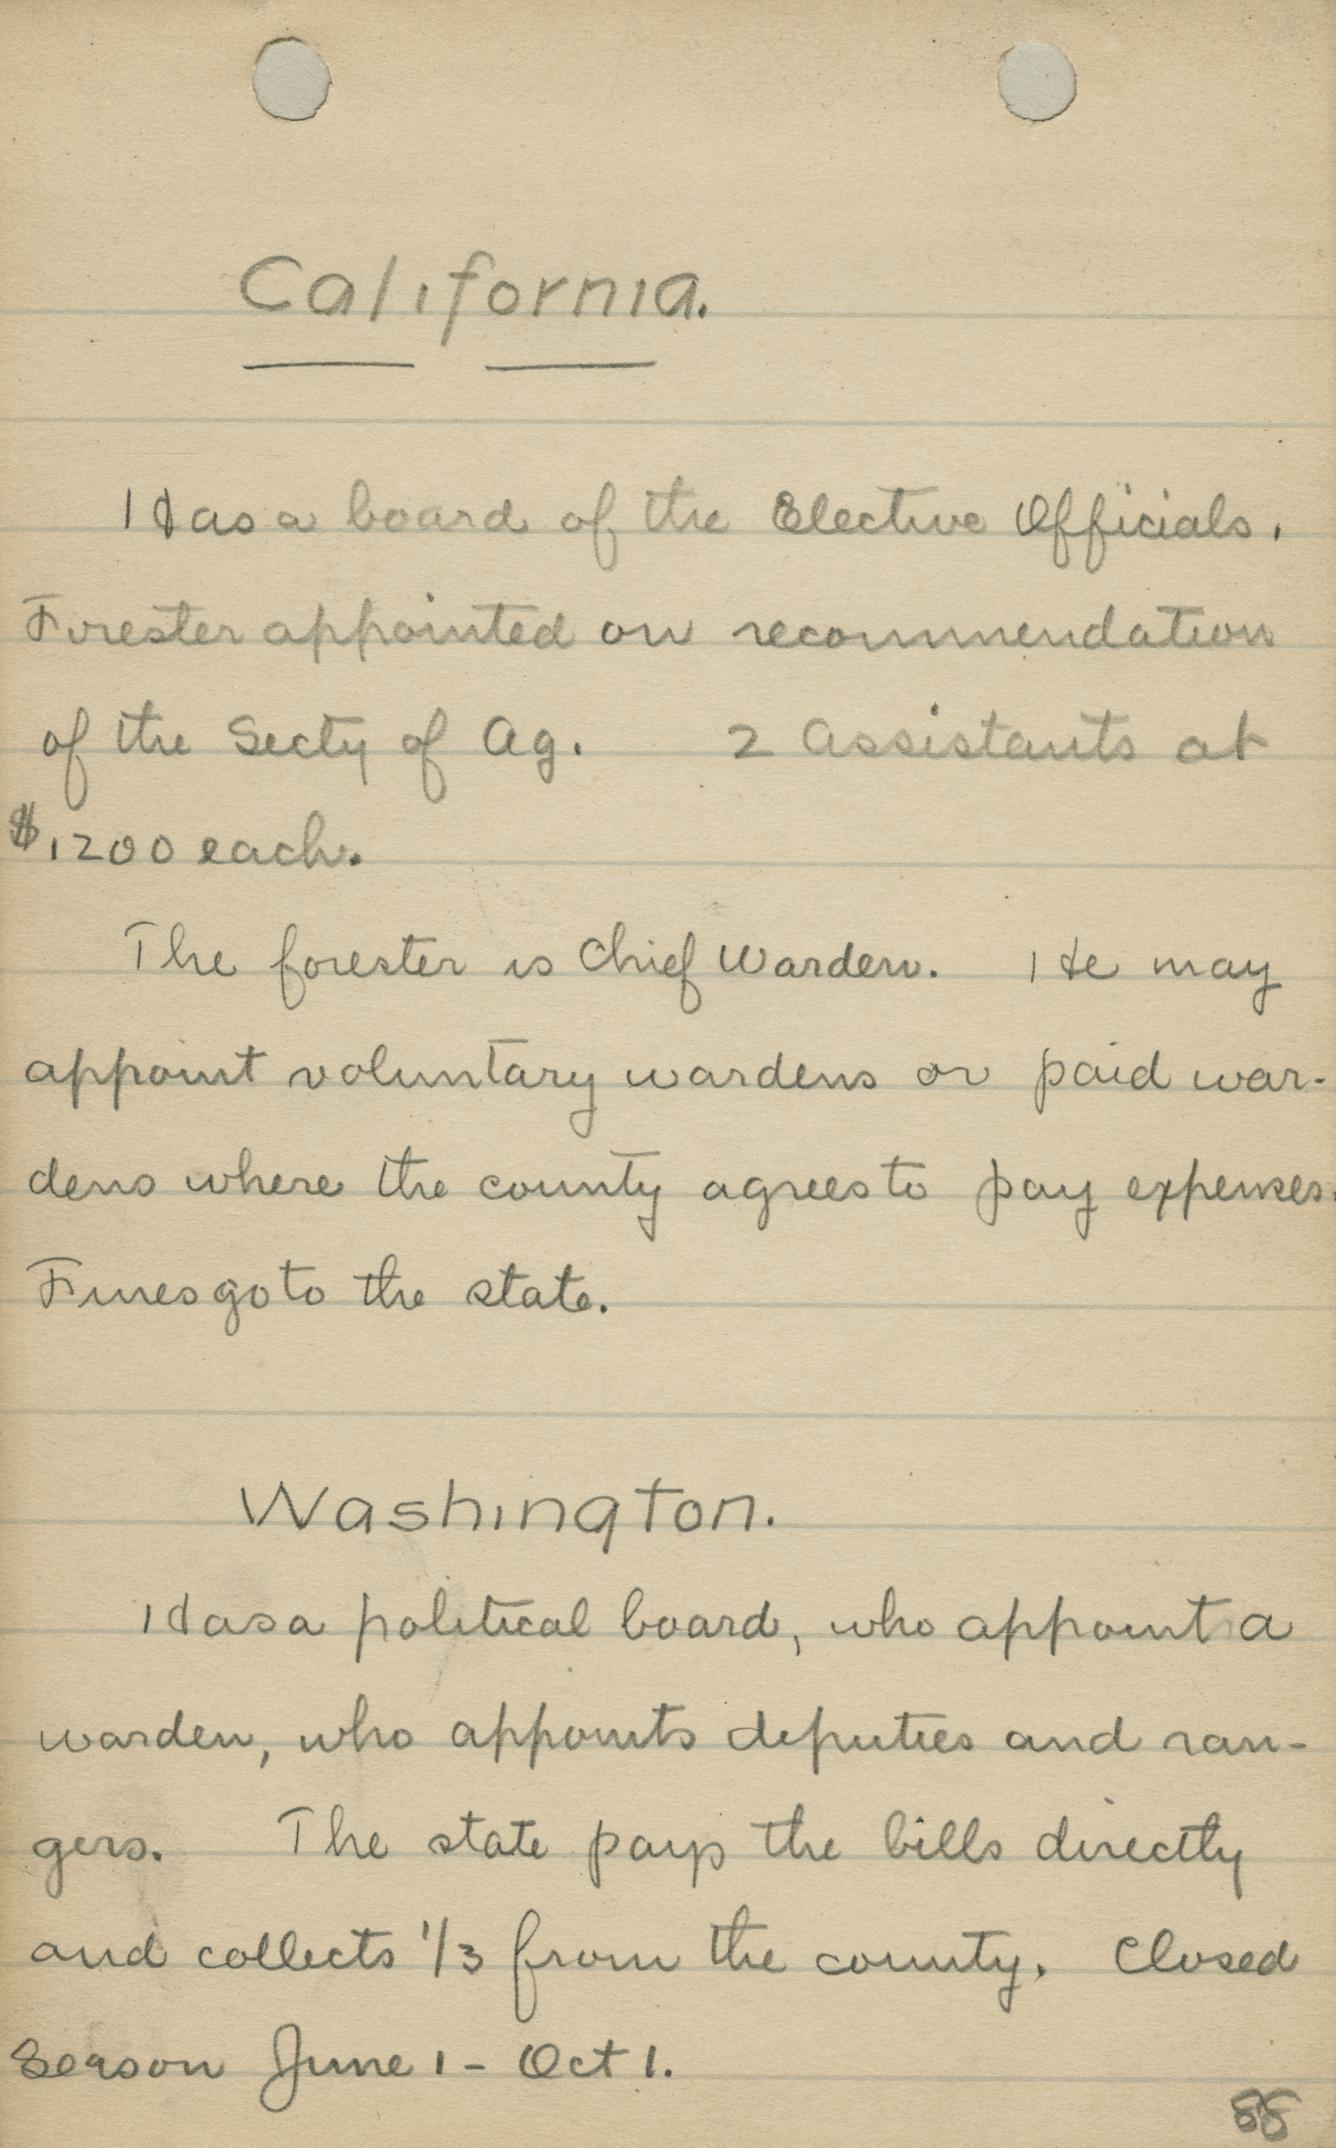 California.
Has a board of the Elective Officials.
Forester appointed on recommendation
of the Secty of Ag. 2 Assistants at
$1200 each.
The forester is Chief Warden. He may
appoint voluntary wardens or paid war-
dens where the county agrees to pay expenses.
Fines go to the state.
Washington.
Has a political board, who appoint a
warden, who appoints deputies and ran-
gers. The state pays the bills directly
and collects 1/3 from the county. Closed
Season June 1 - Oct 1.
88